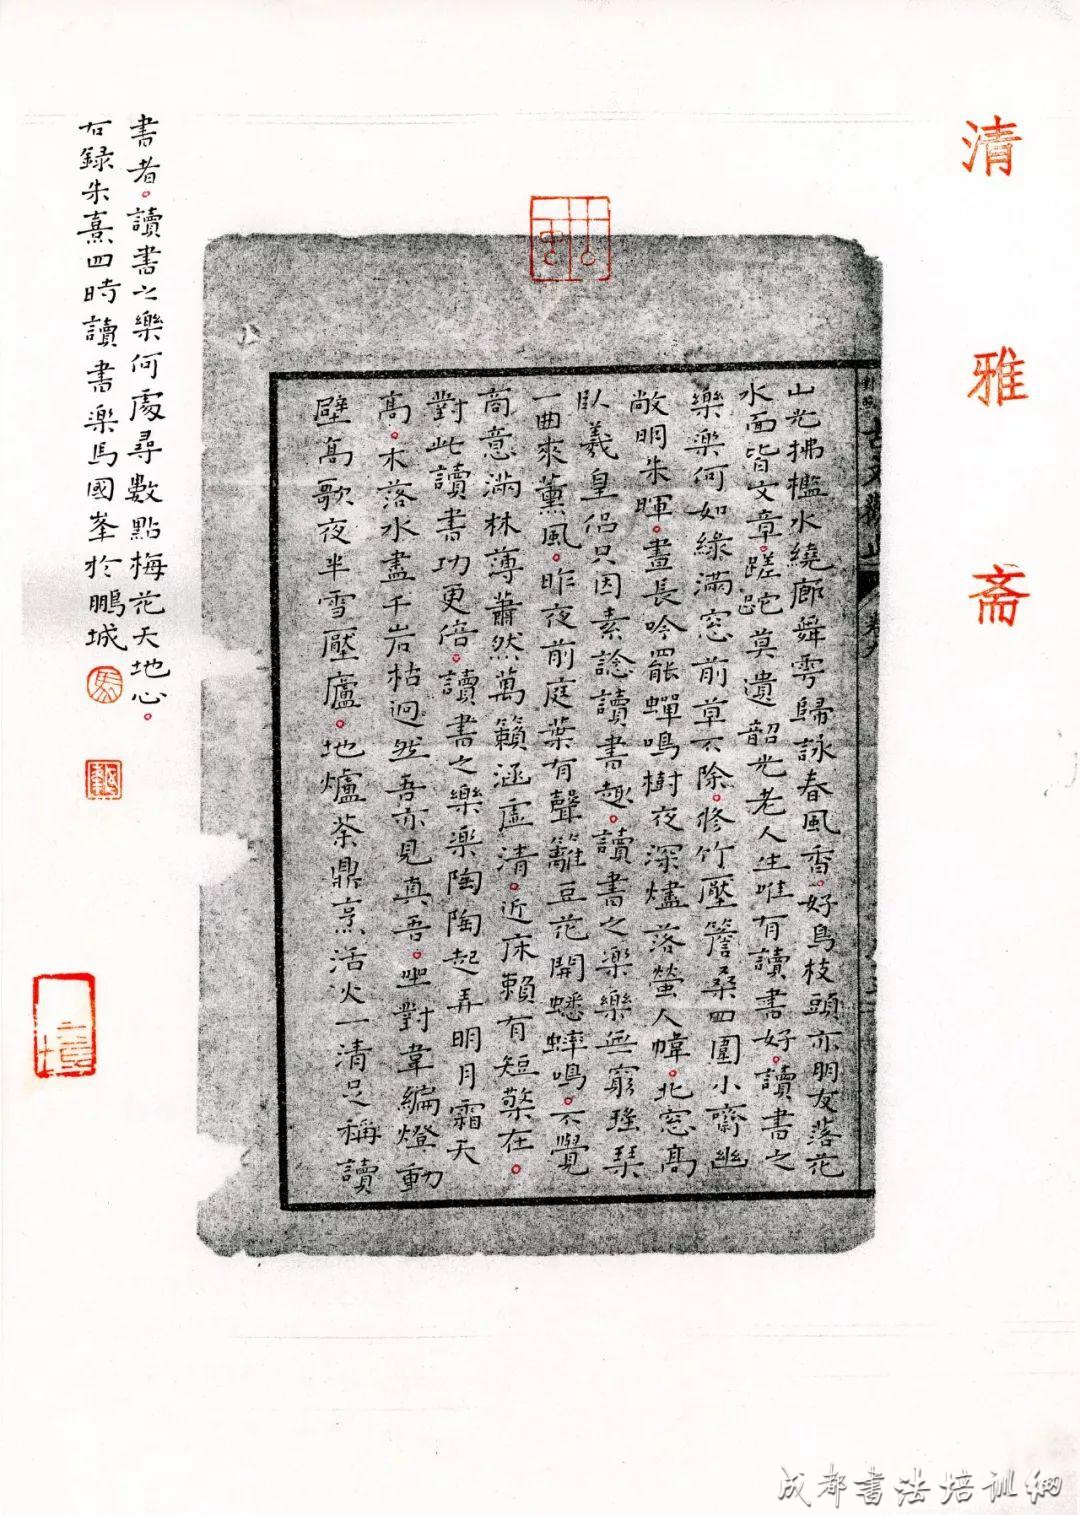 清雅斋
山光拂檻水繞廊舞雩歸詠春風香。好鳥枝頭亦朋友落花
水面皆文章。蹉跎莫遺韶光老人生唯有讀書好。讀書之
樂樂何如綠滿窓前草不除。修竹壓簷桑四圍小齋幽
敞明朱暉。晝長吟罷蟬鳴樹夜深燼落螢人幃。北窓高
臥羲皇侶只因素諗讀書趣。讀書之樂樂無窮瑤琴
一曲來薰風。昨夜前庭葉有聲籬豆花開蟋蟀鳴。不覺
商意滿林薄蕭然萬籟涵虛清。近床賴有短檠在。
對此讀書功更倍。讀書之樂樂陶陶起弄明月霜天
高。木落水盡千岩枯迥然吾亦見真吾。坐對韋編燈動
壁高歌夜半雪壓廬。地爐茶鼎烹活火一清足稱讀
書者。讀書之樂何處尋數點梅花天地心。
右録朱熹四時讀書樂馬國峯於鵬城
成都書法培训網